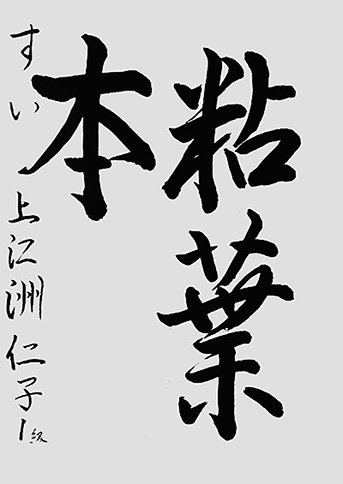 粘葉
本
すい 上江洲仁子 1級